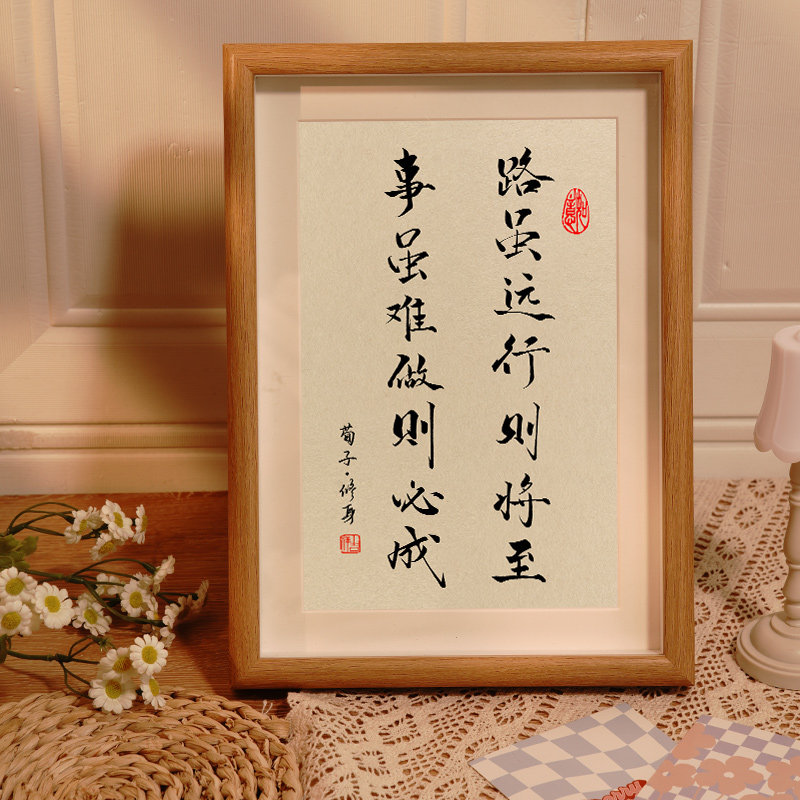 路虽远行则将至
事虽难做则必成
荀子·修身
如意